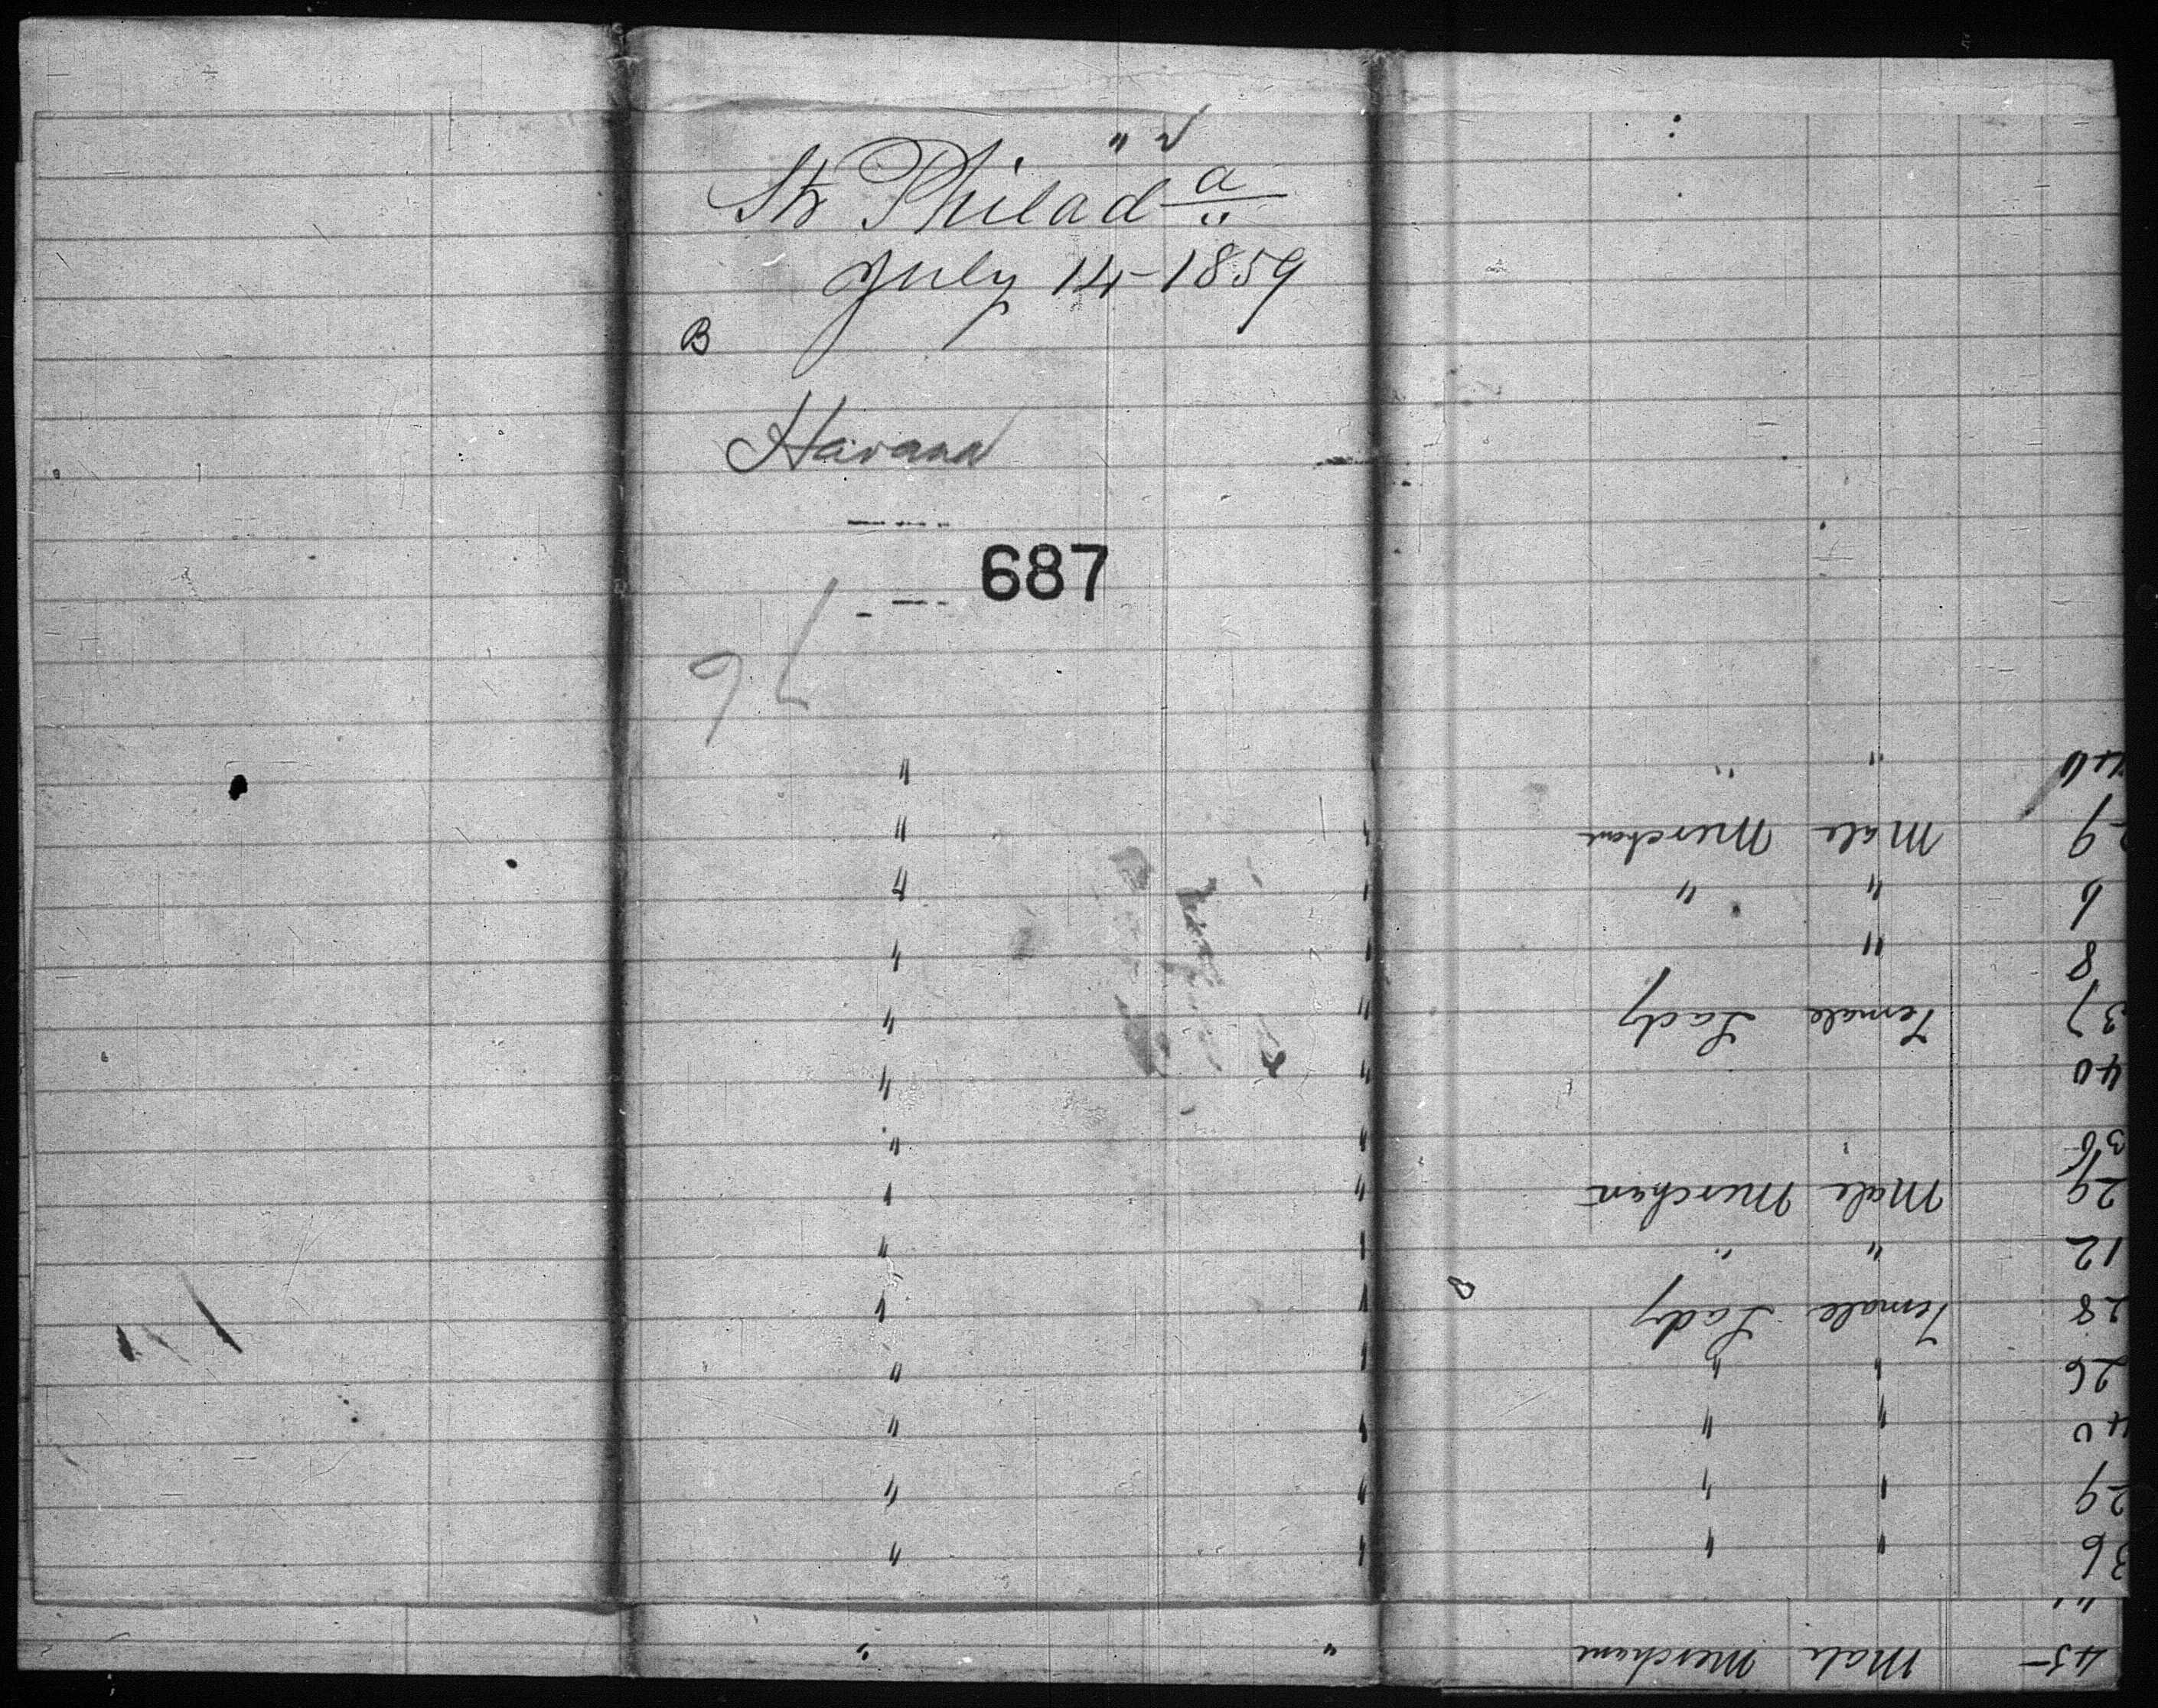 " 2
Str Philad a
July 14-1859
B
Havana
687
76
45 Male Merchant " "
"
36 " " " "
29 " " " "
40 " " " "
26 " " " "
28 Female Lady " "
12 " " " "
29 Male Merchan " "
36 " "
40 " "
37 Female Lady " "
8 " " "
6 " " " "
29 Male Merchant " "
" " "